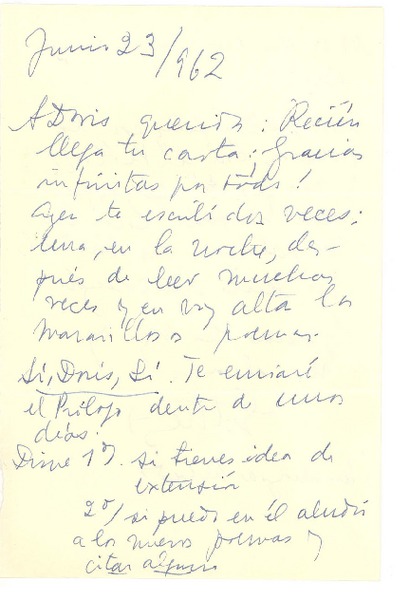 Junio 23/962
A Doris querida: Recién
llega tu carta; gracias
infinitas por todo!
Ayer te escribí dos veces:
una, en la noche, des-
pués de leer muchas
veces y en voz alta los
maravillosos poemas.
Sí, Doris, Sí. Te enviaré
el Prólogo dentro de unos
días.
Dime 1º). si tienes idea de
extensión
2º/ si puedo en él aludir
a los nuevos poemas y
citar alguno